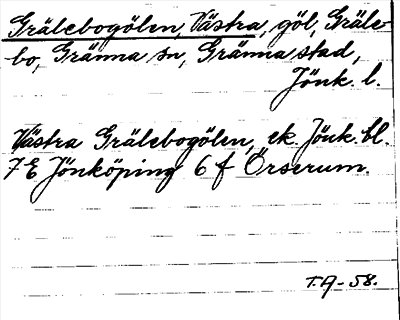 Grälebogölen, Västra, göl, Gräle-
bo, Gränna sn, Gränna stad,
Jönk. l.
Västra Grälebogölen, ek. Jönk. bl.
7E Jönköping 6 f Örserum.
T.A-58.